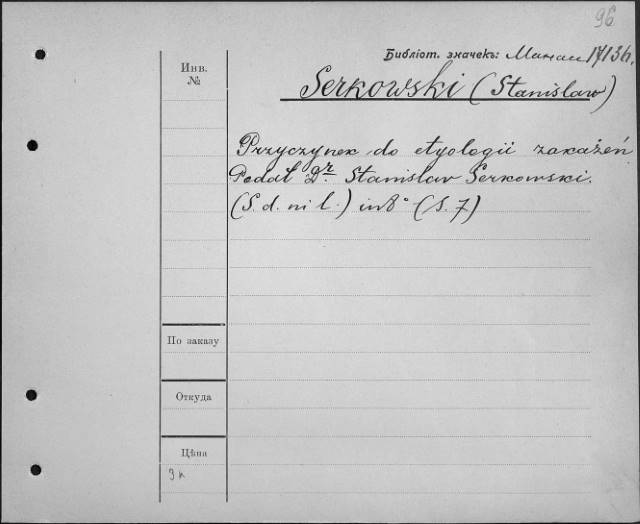 96
Библіот. значекъ: 1713h.
Инв.
№
Serkowski (Stanisław)
Przyczynek do etyologii zakażeń
Podał Dr. Stanisław Serkowski.
(S. d. ni l.) in 8° (S. 7)
По заказу
Откуда
Цѣна